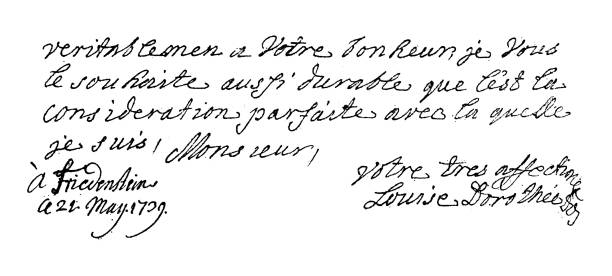 veritablemen a Votre bonheur, je Vous
le souhaite aussi durable que l'est la
consideration parfaite avec la quelle
je suis, Monsieur,
à Friedenstein
a 21. May. 1739.
Votre tres affectionée
Louise Dorothée